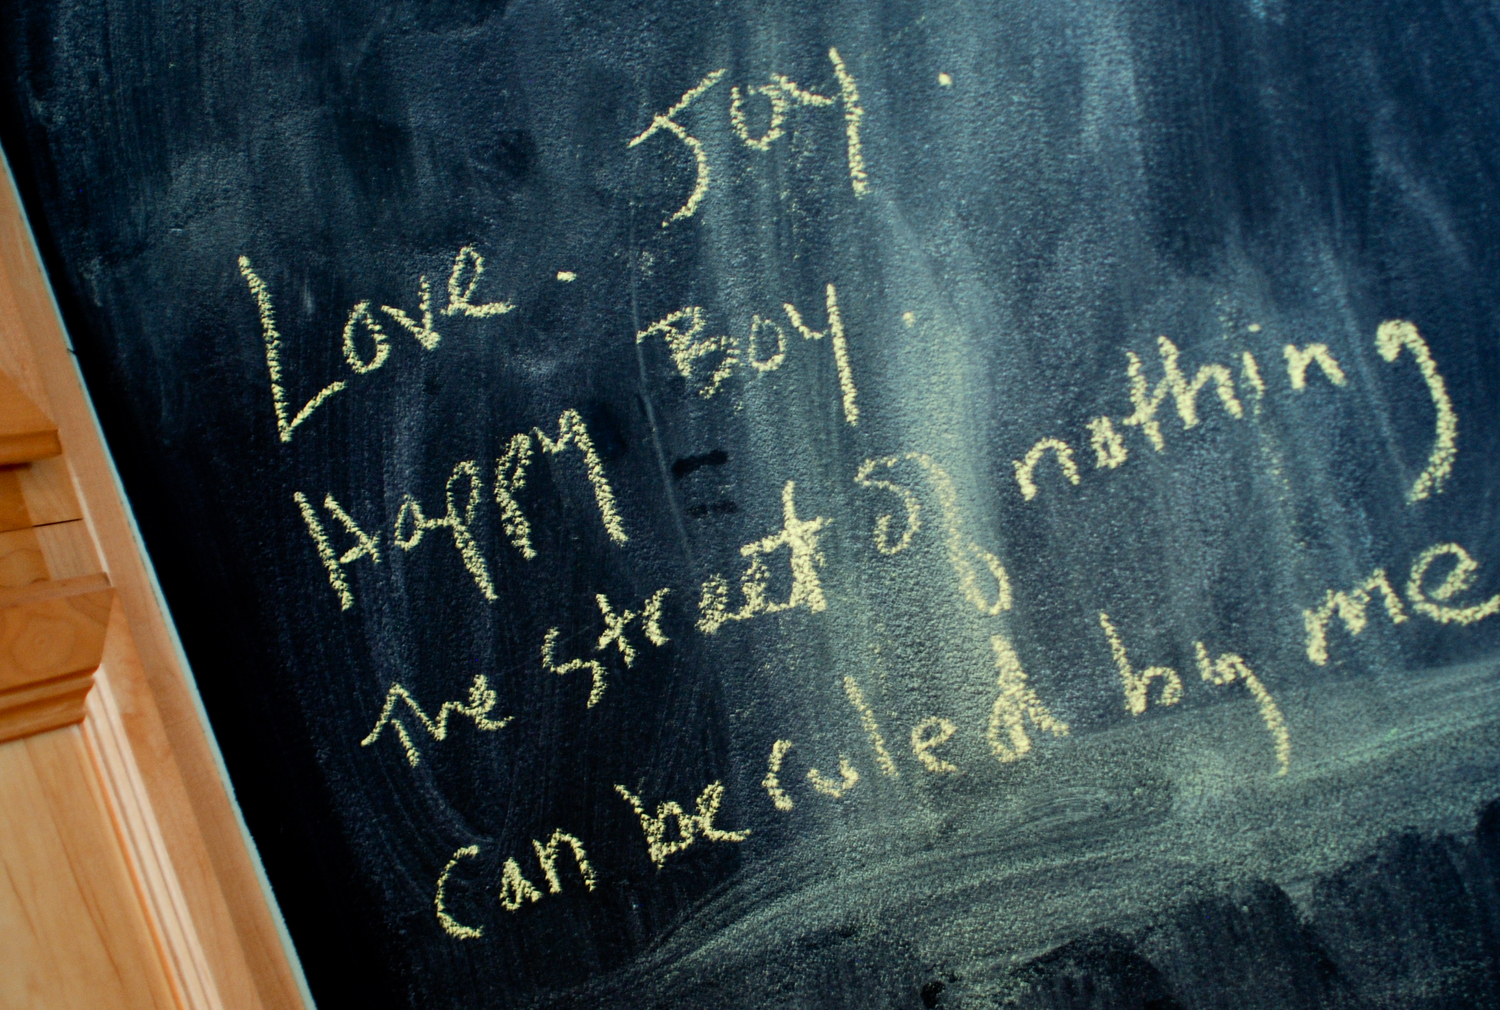 Love. Joy.
Happy Boy.
The street of nothing
Can be ruled by me